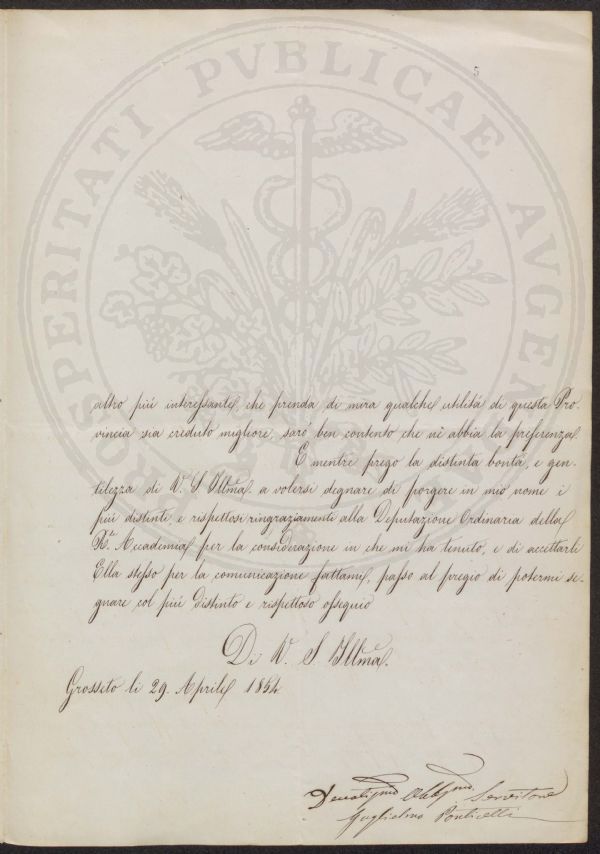 5
PROSPERITATI PVBLICAE AVGEN
altro più interessante, che prenda di mira qualche utilità di questa Pro-
vincia sia creduto migliore, sarò ben contento che n'è abbia la preferenza.
E mentre prego la distinta bontà, e gen-
tilezza di V. S. Illma. a volersi degnare di porgere in mio nome i
più distinti, e rispettosi ringraziamenti alla Deputazione Ordinaria della
Accademia per la considerazione in che mi ha tenuto, e di accettarli
Ella stesso per la comunicazione fattami, passo al pregio di potermi se-
gnare col più distinto e rispettoso ossequio
Di V. S. Illma.
Grosseto li 29. Aprile 1854
Devotissmo Obbgmo. Servitore
Guglielmo Ponticelli